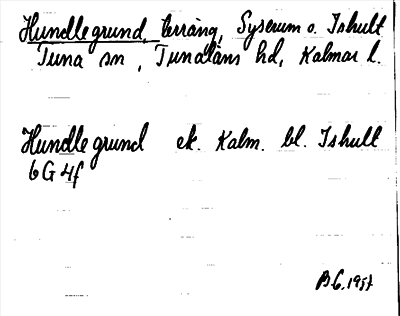 Hundlegrund, terräng, Syserum o. Ishult
Tuna sn, Tunaläns hd, Kalmar l.
Hundlegrund ek. Kalm. bl. Ishult
6G4f
B.G. 1957